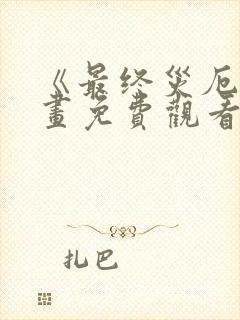 《最终災厄
畫免費觀看
扎巴